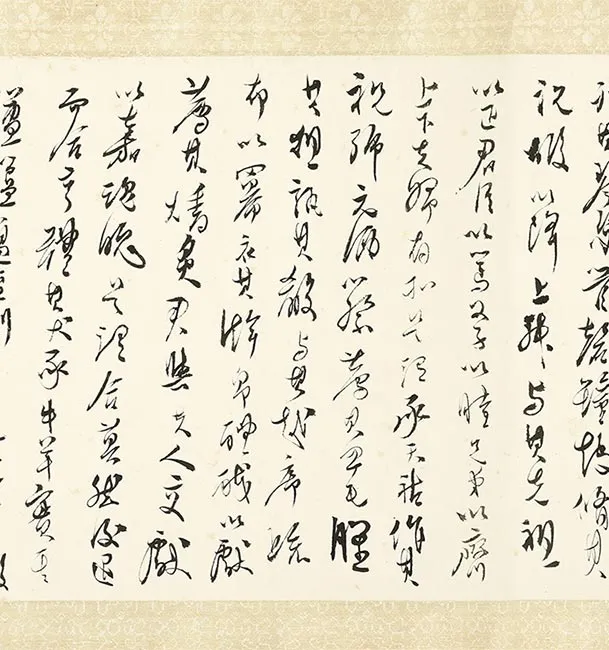 列其琴瑟管磬鐘鼓修其
祝嘏以降上神與其先祖
以正君臣以篤父子以睦兄弟以齊
上下夫婦有所是謂承天祜作其
祝號玄酒以祭薦其血毛腥
其俎孰其殽與其越席疏
布以冪衣其澣帛醴醆以獻
薦其燔炙君與夫人交獻
以嘉魂魄是謂合莫然後退
而合亨體其犬豕牛羊實其
簠簋籩豆鉶